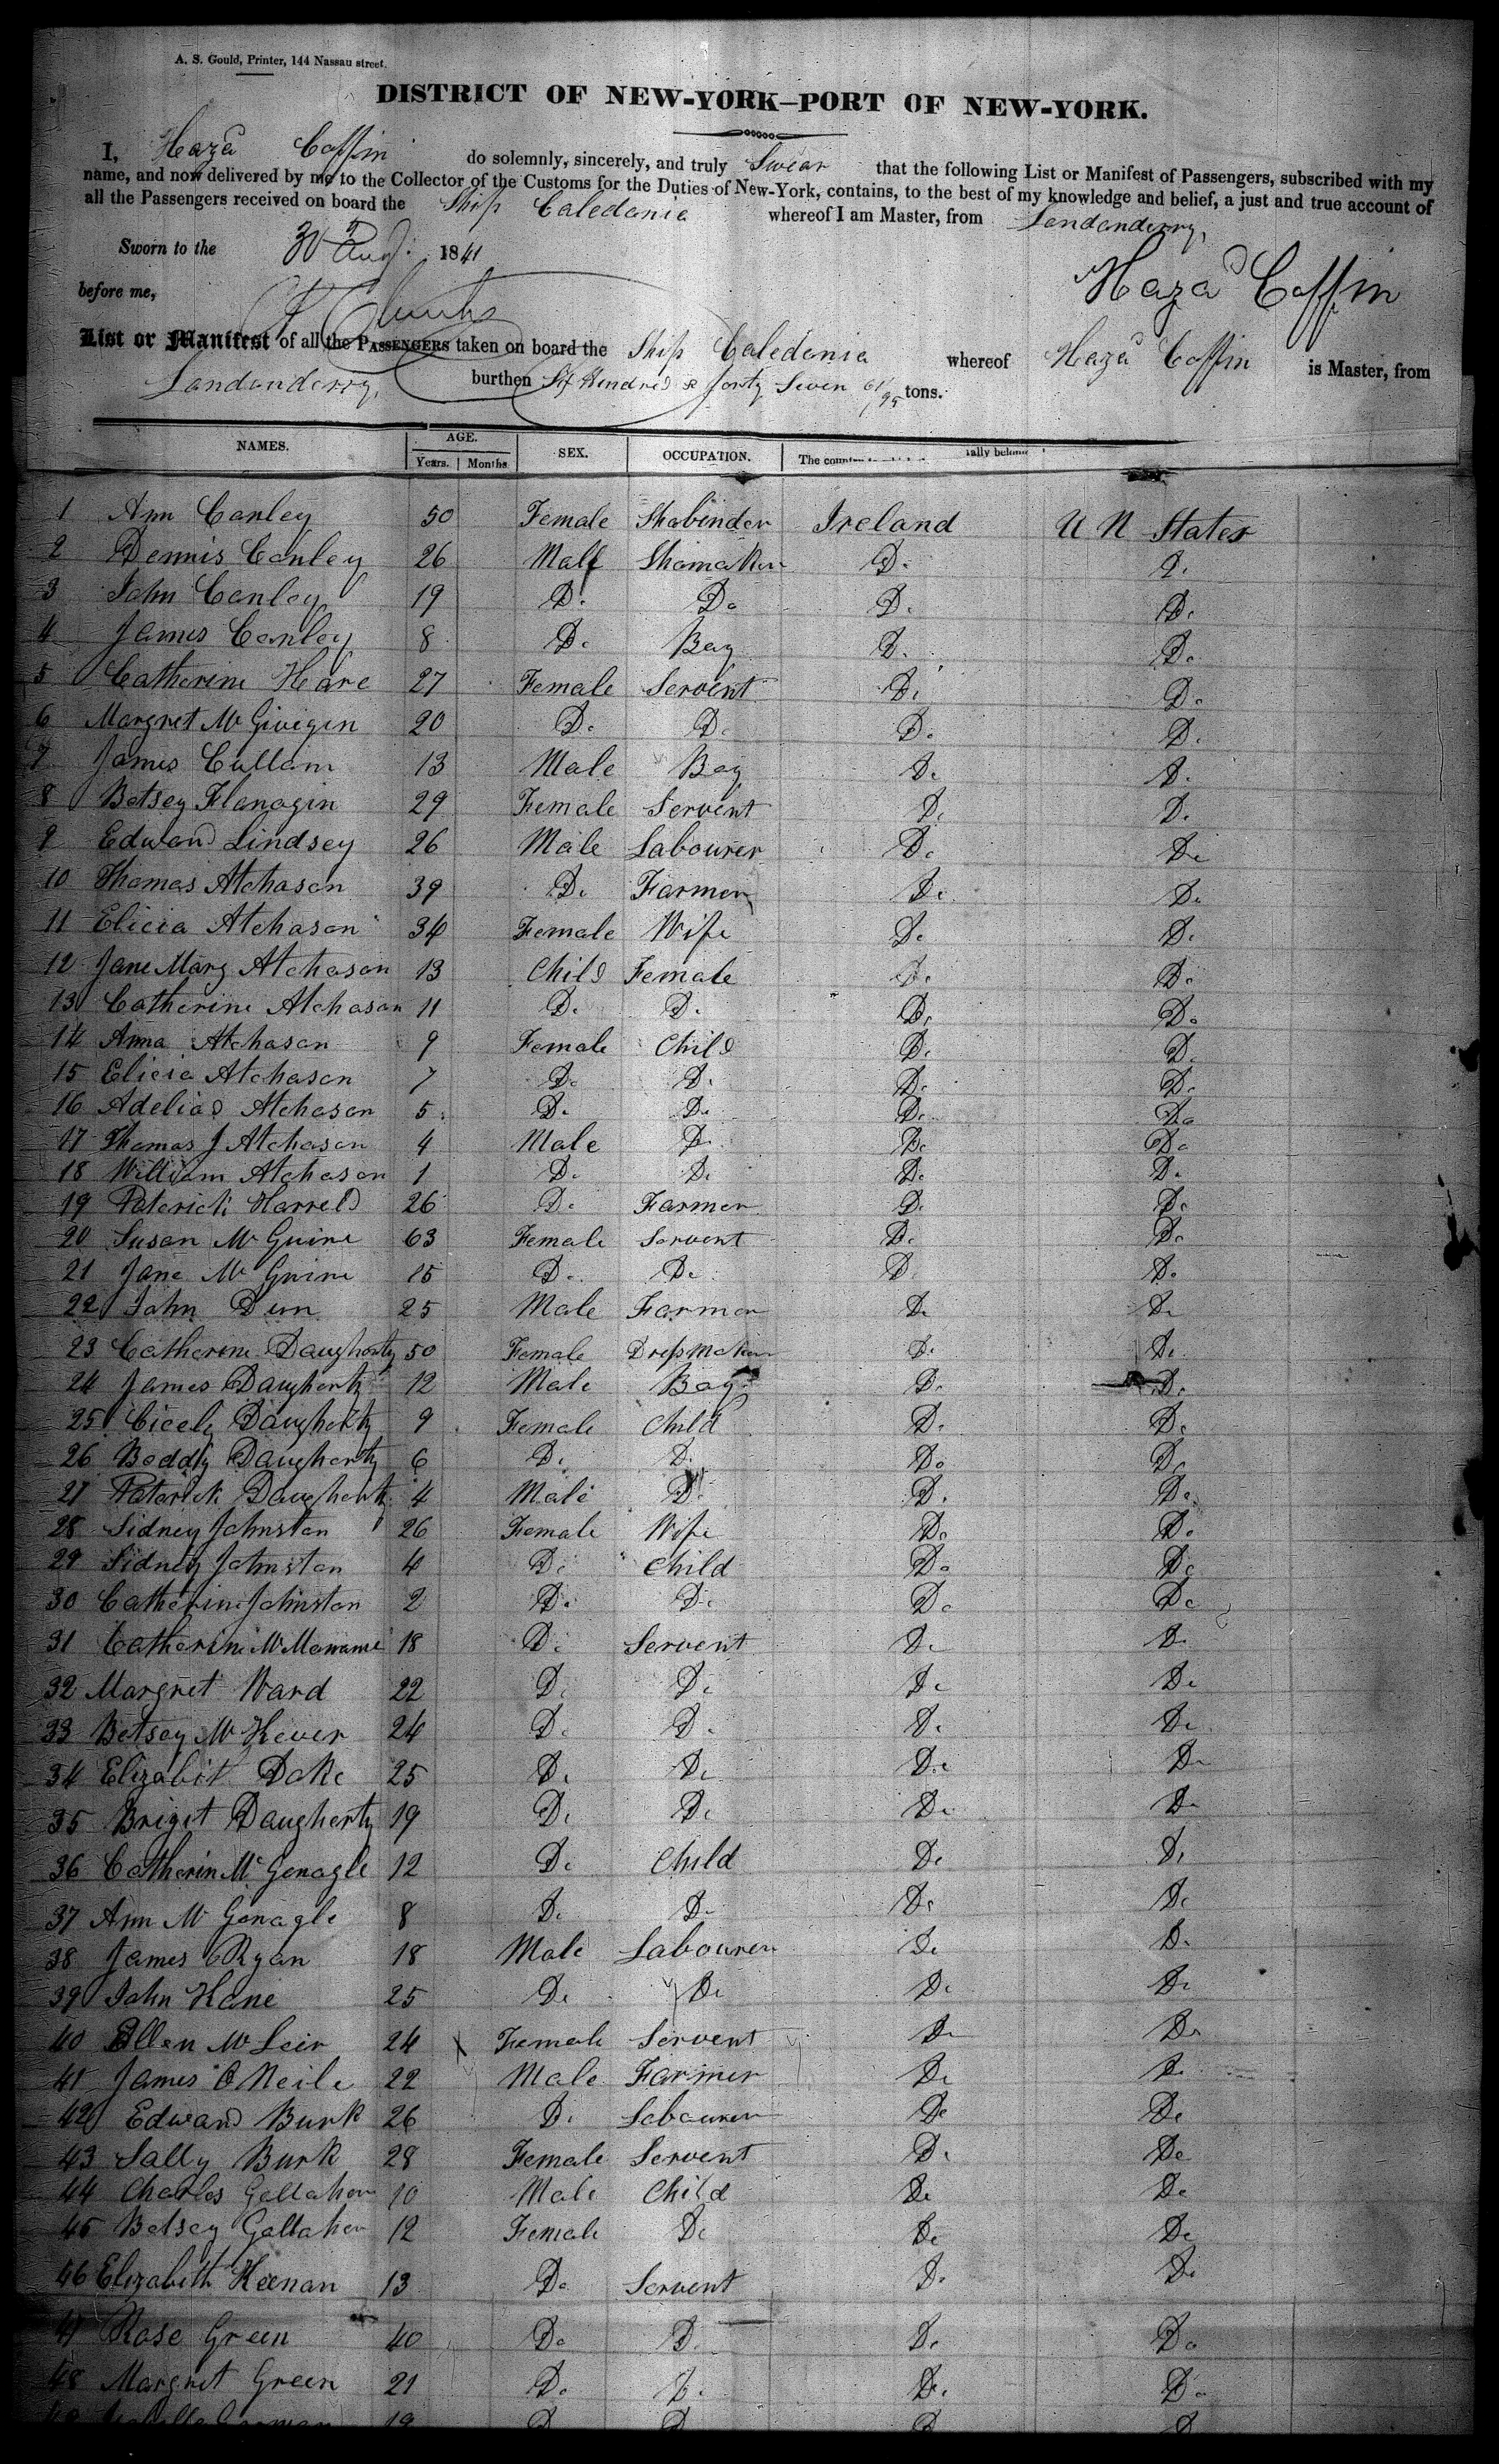 A. S. Gould, Printer, 144 Nassau street.
DISTRICT OF NEW-YORK–PORT OF NEW-YORK.
I, Hazd Coffin do solemnly, sincerely, and truly Swear that the following List or Manifest of Passengers, subscribed with my
name, and now delivered by me to the Collector of the Customs for the Duties of New-York, contains, to the best of my knowledge and belief, a just and true account of
all the Passengers received on board the Ship Caledonia whereof I am Master, from Londonderry,
Sworn to the 30 Aug. 1841
before me, Hazd Coffin
List or Manifest of all the PASSENGERS taken on board the Ship Caledonia whereof Hazd Coffin is Master, from
Londonderry, burthen Six Hundred & forty Seven 61/95 tons.
NAMES. AGE. SEX. OCCUPATION. The country
Years. Months
1 Ann Conley 50 Female Shobinder Ireland U N States
2 Dennis Conley 26 Male Shomaker Do Do
3 John Conley 19 Do Do Do Do
4 James Conley 8 Do Boy Do Do
5 Catherine Hare 27 Female Servent Do Do
6 Margret Mc Givigin 20 Do Do Do Do
7 James Cullam 13 Male Boy Do Do
8 Betsey Flanogin 29 Female Servent Do Do
9 Edward Lindsey 26 Male Labourer Do Do
10 Thomas Atchason 39 Do Farmer Do Do
11 Elicia Atchason 34 Female Wife Do Do
12 Jane Mary Atchason 13 Child Female Do Do
13 Catherine Atchason 11 Do Do Do Do
14 Anna Atchason 9 Female Child Do Do
15 Elicia Atchason 7 Do Do Do Do
16 Adeliad Atchason 5 Do Do Do Do
17 Thomas J Atchason 4 Male Do Do Do
18 William Atchason 1 Do Do Do Do
19 Paterick Harreld 26 Do Farmer Do Do
20 Susan Mc Guire 63 Female Servent Do Do
21 Jane Mc Guire 15 Do Do Do Do
22 John Dunn 25 Male Farmer Do Do
23 Catherine Daugherty 50 Female Dressmaker Do Do
24 James Daugherty 12 Male Boy Do Do
25 Cicely Daugherty 9 Female Child Do Do
26 Beddy Daugherty 6 Do Do Do Do
27 Paterick Daugherty 4 Male Do Do Do
28 Sidney Johnston 26 Female Wife Do Do
29 Sidney Johnston 4 Do Child Do Do
30 Catherine Johnston 2 Do Do Do Do
31 Catherine Mc 18 Do Servent Do Do
32 Margret Ward 22 Do Do Do Do
33 Betsey Mc Kever 24 Do Do Do Do
34 Elizabit Doke 25 Do Do Do Do
35 Briget Daugherty 19 Do Do Do Do
36 Catherin Mc Gonagle 12 Do Child Do Do
37 Ann Mc Gonagle 8 Do Do Do Do
38 James Ryan 18 Male Labourer Do Do
39 John Kane 25 Do Do Do Do
40 Ellen Mc Leir 24 Female Servent Do Do
41 James O Neile 22 Male Farmer Do Do
42 Edward Burk 26 Do Labourer Do Do
43 Sally Burk 28 Female Servent Do Do
44 Charles Gallaher 10 Male Child Do Do
45 Betsey Gallaher 12 Female Do Do Do
46 Elizabeth Keenan 13 Do Servent Do Do
47 Rose Green 40 Do Do Do Do
48 Margret Green 21 Do Do Do Do
19